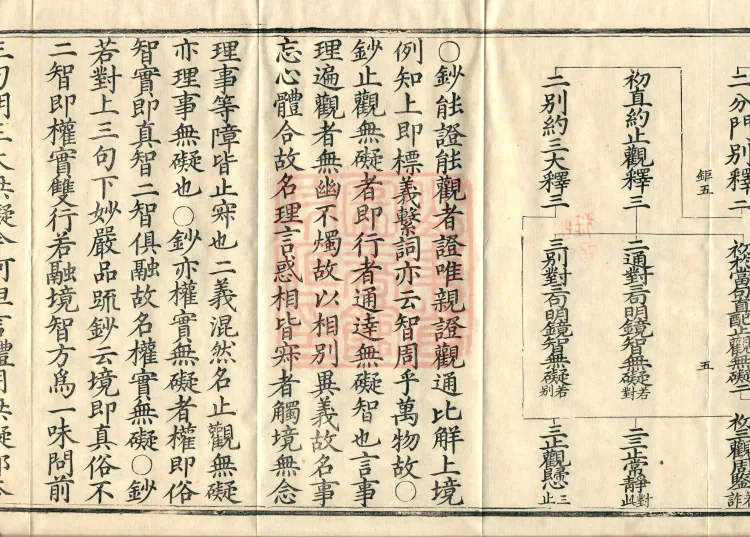 二分門別釋二
初直約止觀釋三
二別約三大釋三
鉅五
五
二通對三句明鏡智無礙若對
三別對三句明鏡智無礙若別
二三止常靜對此
三正觀
○鈔能證能觀者證唯親證觀通比解上境
例知上即標義繫詞亦云智周乎萬物故○
鈔止觀無礙者即行者通達無礙智也言事
理遍觀者無幽不燭故以相別異義故名事
忘心體合故名理言惑相皆㝛者觸境無念
理事等障皆止㝛也二義混然名止觀無礙
亦理事無礙也○鈔亦權實無礙者權即俗
智實即真智二智俱融故名權實無礙○鈔
若對上三句下妙嚴品䟽鈔云境即真俗不
二智即權實雙行若融境智方爲一味問前